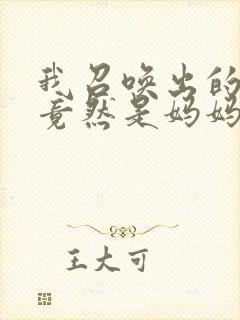 我召唤出的
竟然是妈妈
王大可